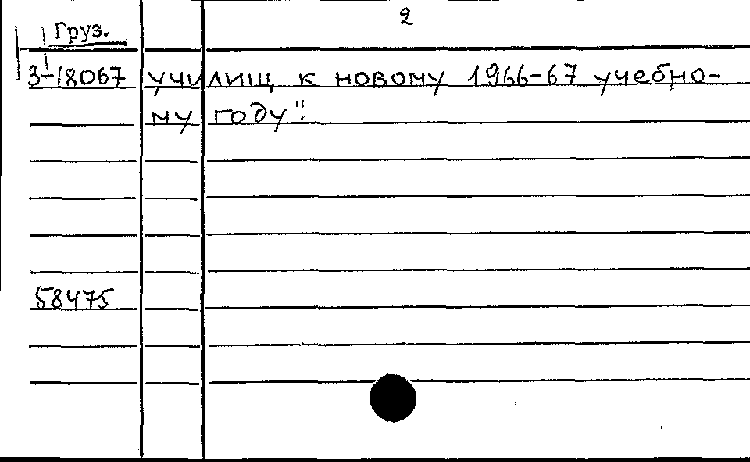 2
Груз.
3-18067 училищ к новому 1966-67 учебно-
му году".
58475